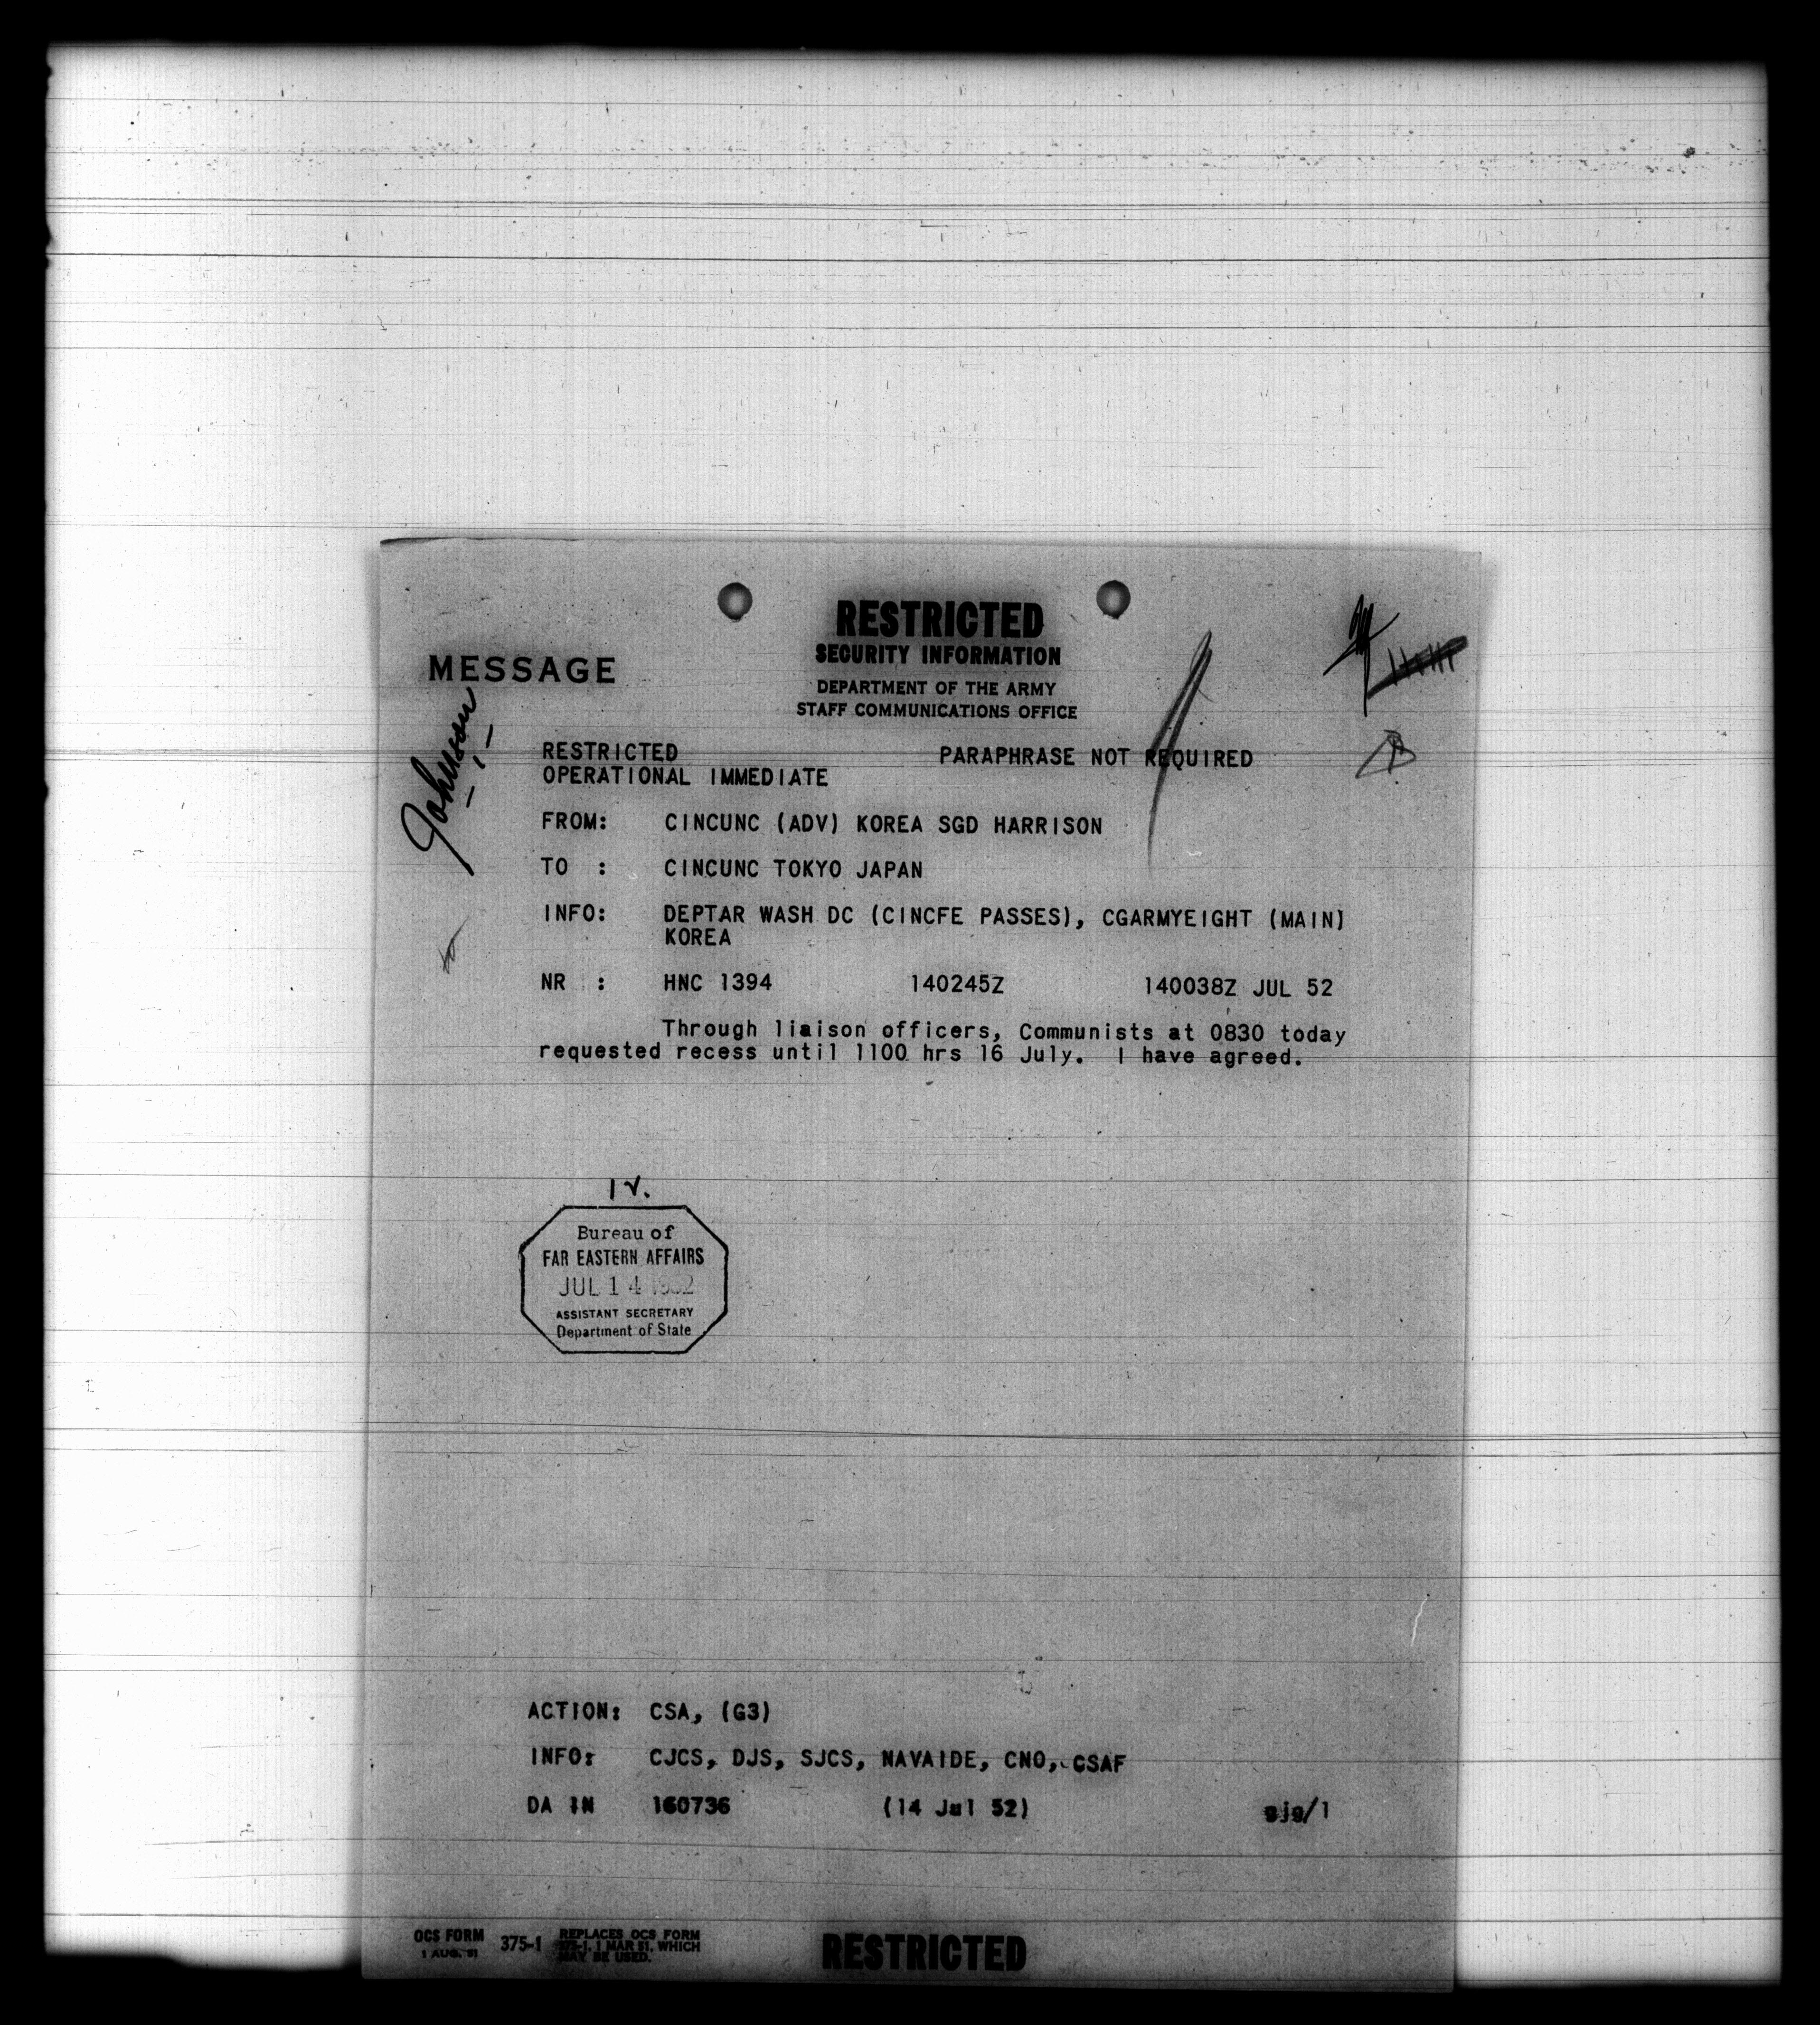 RESTRICTED
SECURITY INFORMATION
MESSAGE
DEPARTMENT OF THE ARMY
STAFF COMMUNICATIONS OFFICE
Johnson
RESTRICTED PARAPHRASE NOT REQUIRED
OPERATIONAL IMMEDIATE
FROM: CINCUNC (ADV) KOREA SGD HARRISON
TO : CINCUNC TOKYO JAPAN
INFO: DEPTAR WASH DC (CINCFE PASSES), CGARMYEIGHT (MAIN)
KOREA
NR : HNC 1394 140245Z 140038Z JUL 52
Through liaison officers, Communists at 0830 today
requested recess until 1100 hrs 16 July. I have agreed.
Bureau of
FAR EASTERN AFFAIRS
JUL 14 1952
ASSISTANT SECRETARY
Department of State
ACTION: CSA, (G3)
INFO: CJCS, DJS, SJCS, NAVAIDE, CNO, CSAF
DA IN 160736 (14 Jul 52)
OCS FORM 375-1 REPLACES OCS FORM
1 AUG. 51 375-1, 1 MAR 51, WHICH
MAY BE USED.
RESTRICTED